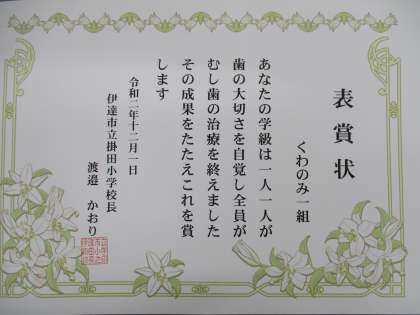 表賞状
くわのみ一組
あなたの学級は一人一人が
歯の大切さを自覚し全員が
むし歯の治療を終えました
その成果をたたえこれを賞
します
令和二年十二月一日
伊達市立掛田小学校長
渡邉 かおり